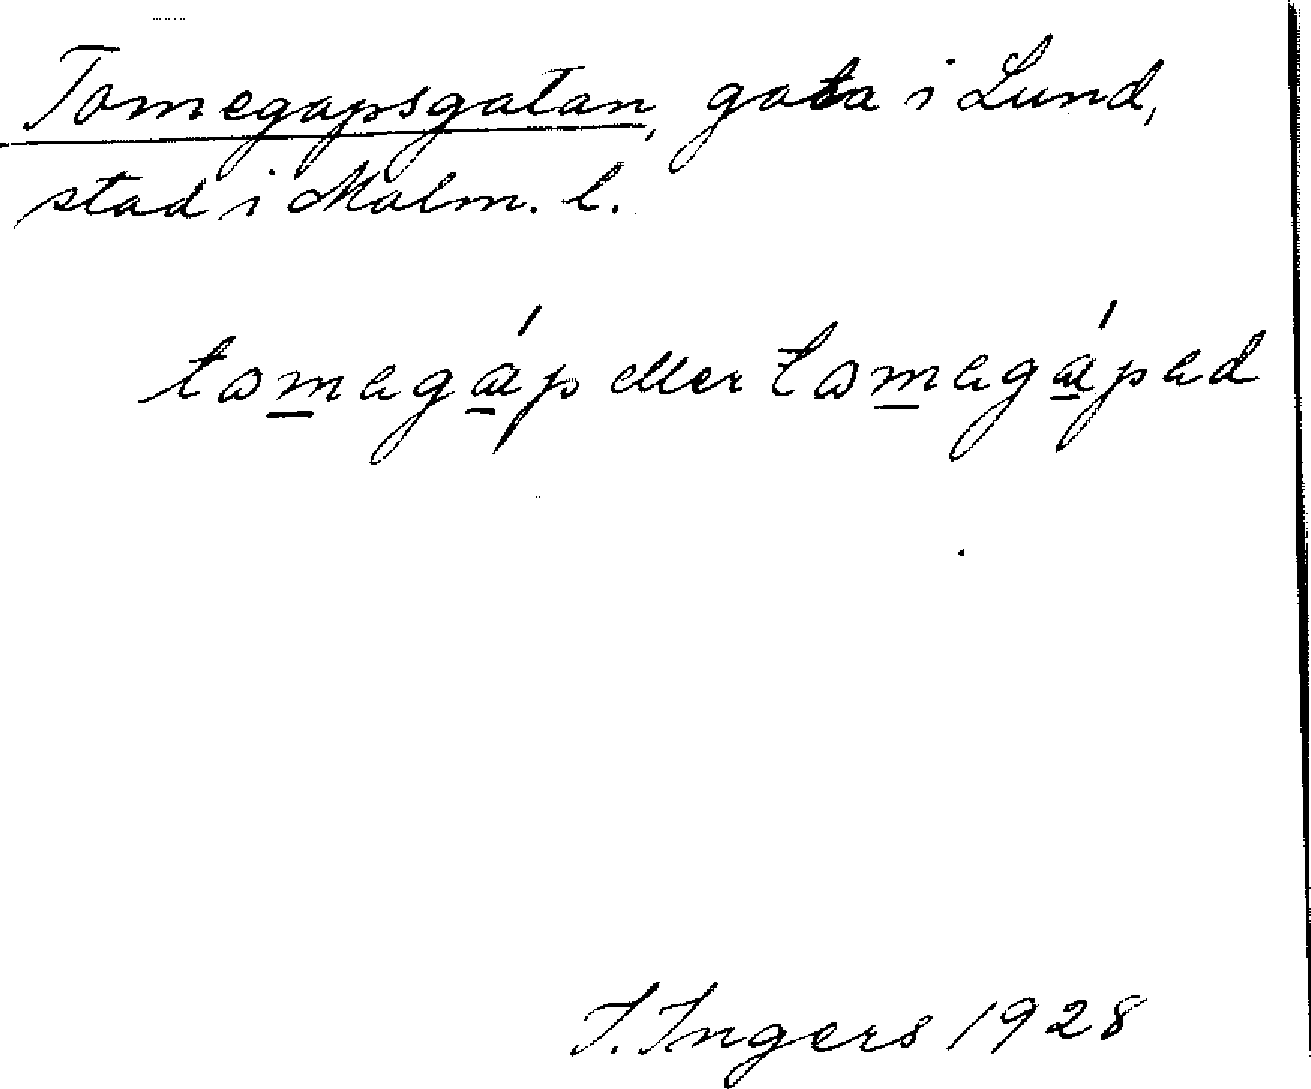 Tomegapsgatan, gata i Lund,
stad i Malm. l.
tomagáp eller tomagápad
I. Ingers 1928